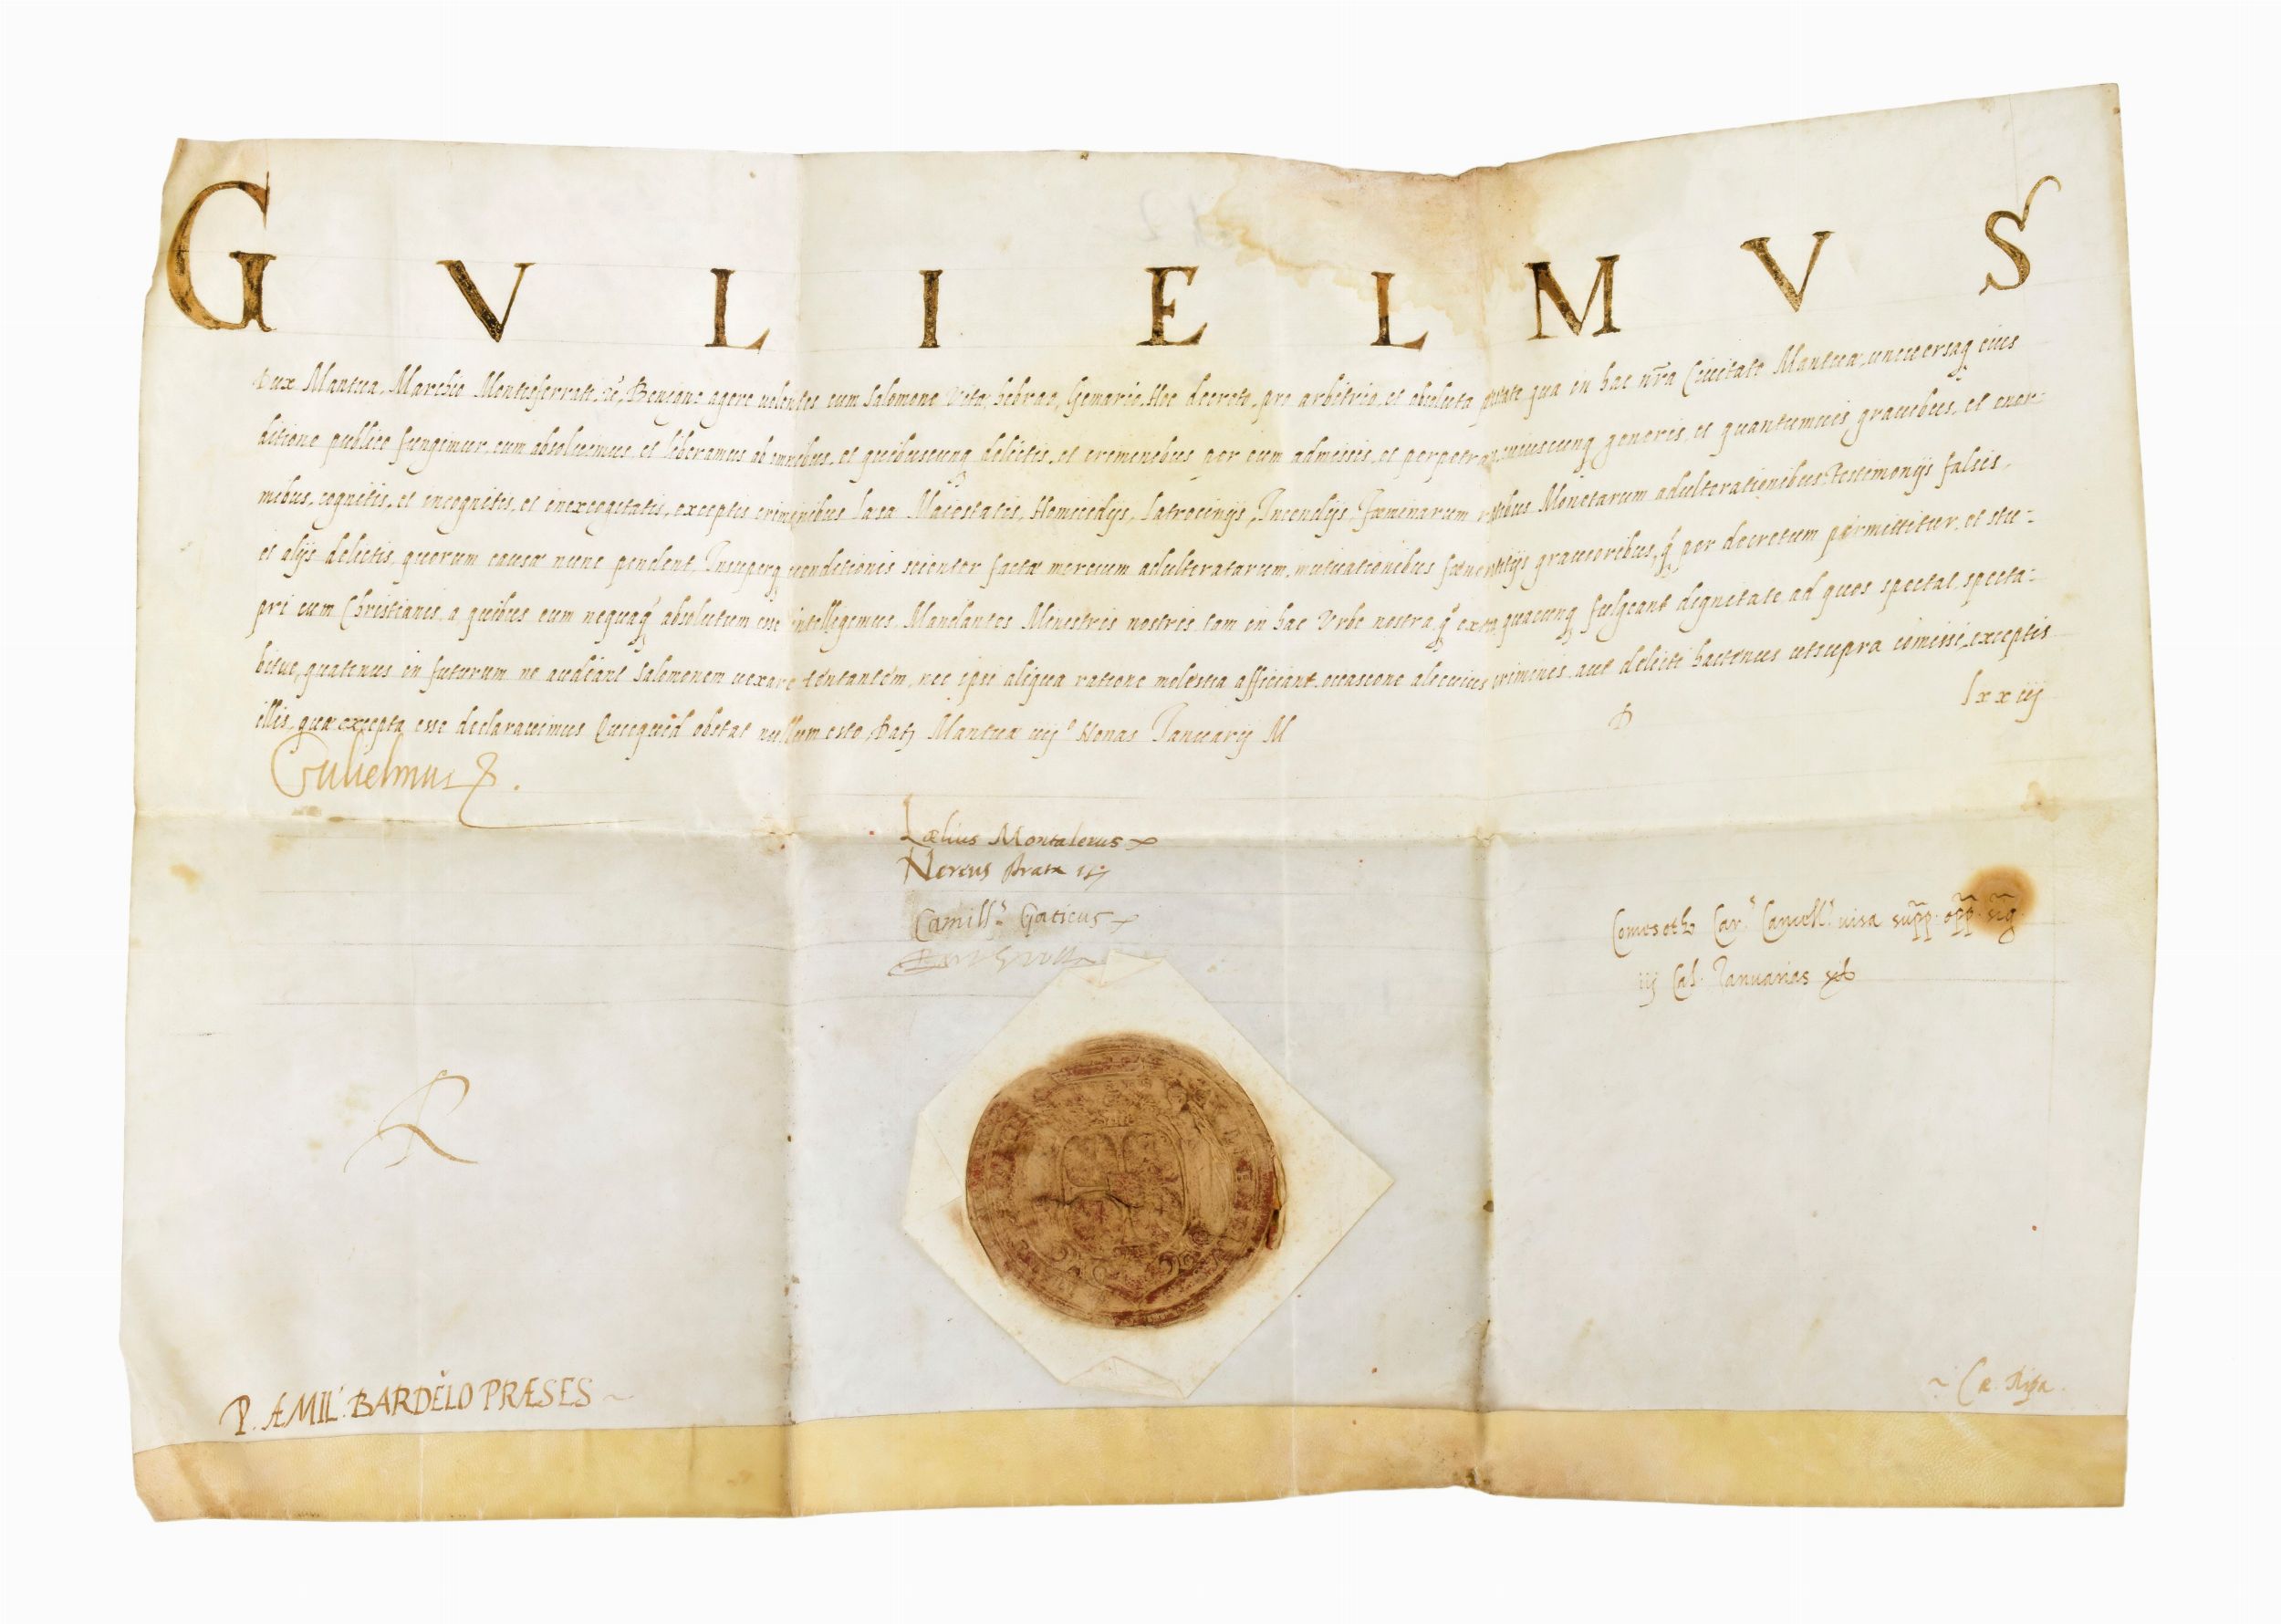 GVLIELMVS
Dux Mantuæ, Marchio Montisferrati, &c., Benigne agere uolentes cum Salomone Vita, hebreo, Hoc decreto, pro arbitrio, et absoluta ptãte qua in hac nr̃a Ciuitate Mantuæ, uniuersaq eius
ditione publico fungimur, eum absoluimus et liberamus ab omnibus, et quibuscunq delictis, et criminibus per eum admissis, et perpetratis, cuiuscunq generis, et quantumuis grauibus, et enor-
mibus, cognitis, et incognitis, et inexcogitatis, exceptis criminibus læsæ Maiestatis, Homicidijs, Latrocinijs, Incendijs, Fœminarum raptibus Monetarum adulterationibus, Testimonijs falsis,
et alijs delictis, quorum causæ nunc pendent. Insuperq uenditionis scienter factæ mercium adulteratarum, mutuationibus fœneratitijs grauioribus, q̃ per decretum permittitur, et stu-
pri cum Christianis, a quibus eum nequaq̃ absolutum esse intelligimus. Mandantes Ministris nostris tam in hac Vrbe nostra, q̃ extra, quacunq fulgeant dignitate ad quos spectat, specta-
bitue, quatenus in futurum ne audiant Salomonem uexare tentantem, nec ipsi aliqua ratione molestia afficiant, occasione alicuius criminis, aut delicti hactenus utsupra comissi, exceptis
illis, quæ excepta esse declarauimus Quicquid obstat nullum esto, Datꝫ Mantuæ iiij° Nonas Januarij M D lxxiij
Gulielmus
Lælius Montalerus
Nereus
Camill.s Gaticus
Car.s Cancell.s uisa supp. opp. sig
iij Cal. Januarias
R
P. ÆMIL. BARDELO PRÆSES
Ca. Ripa